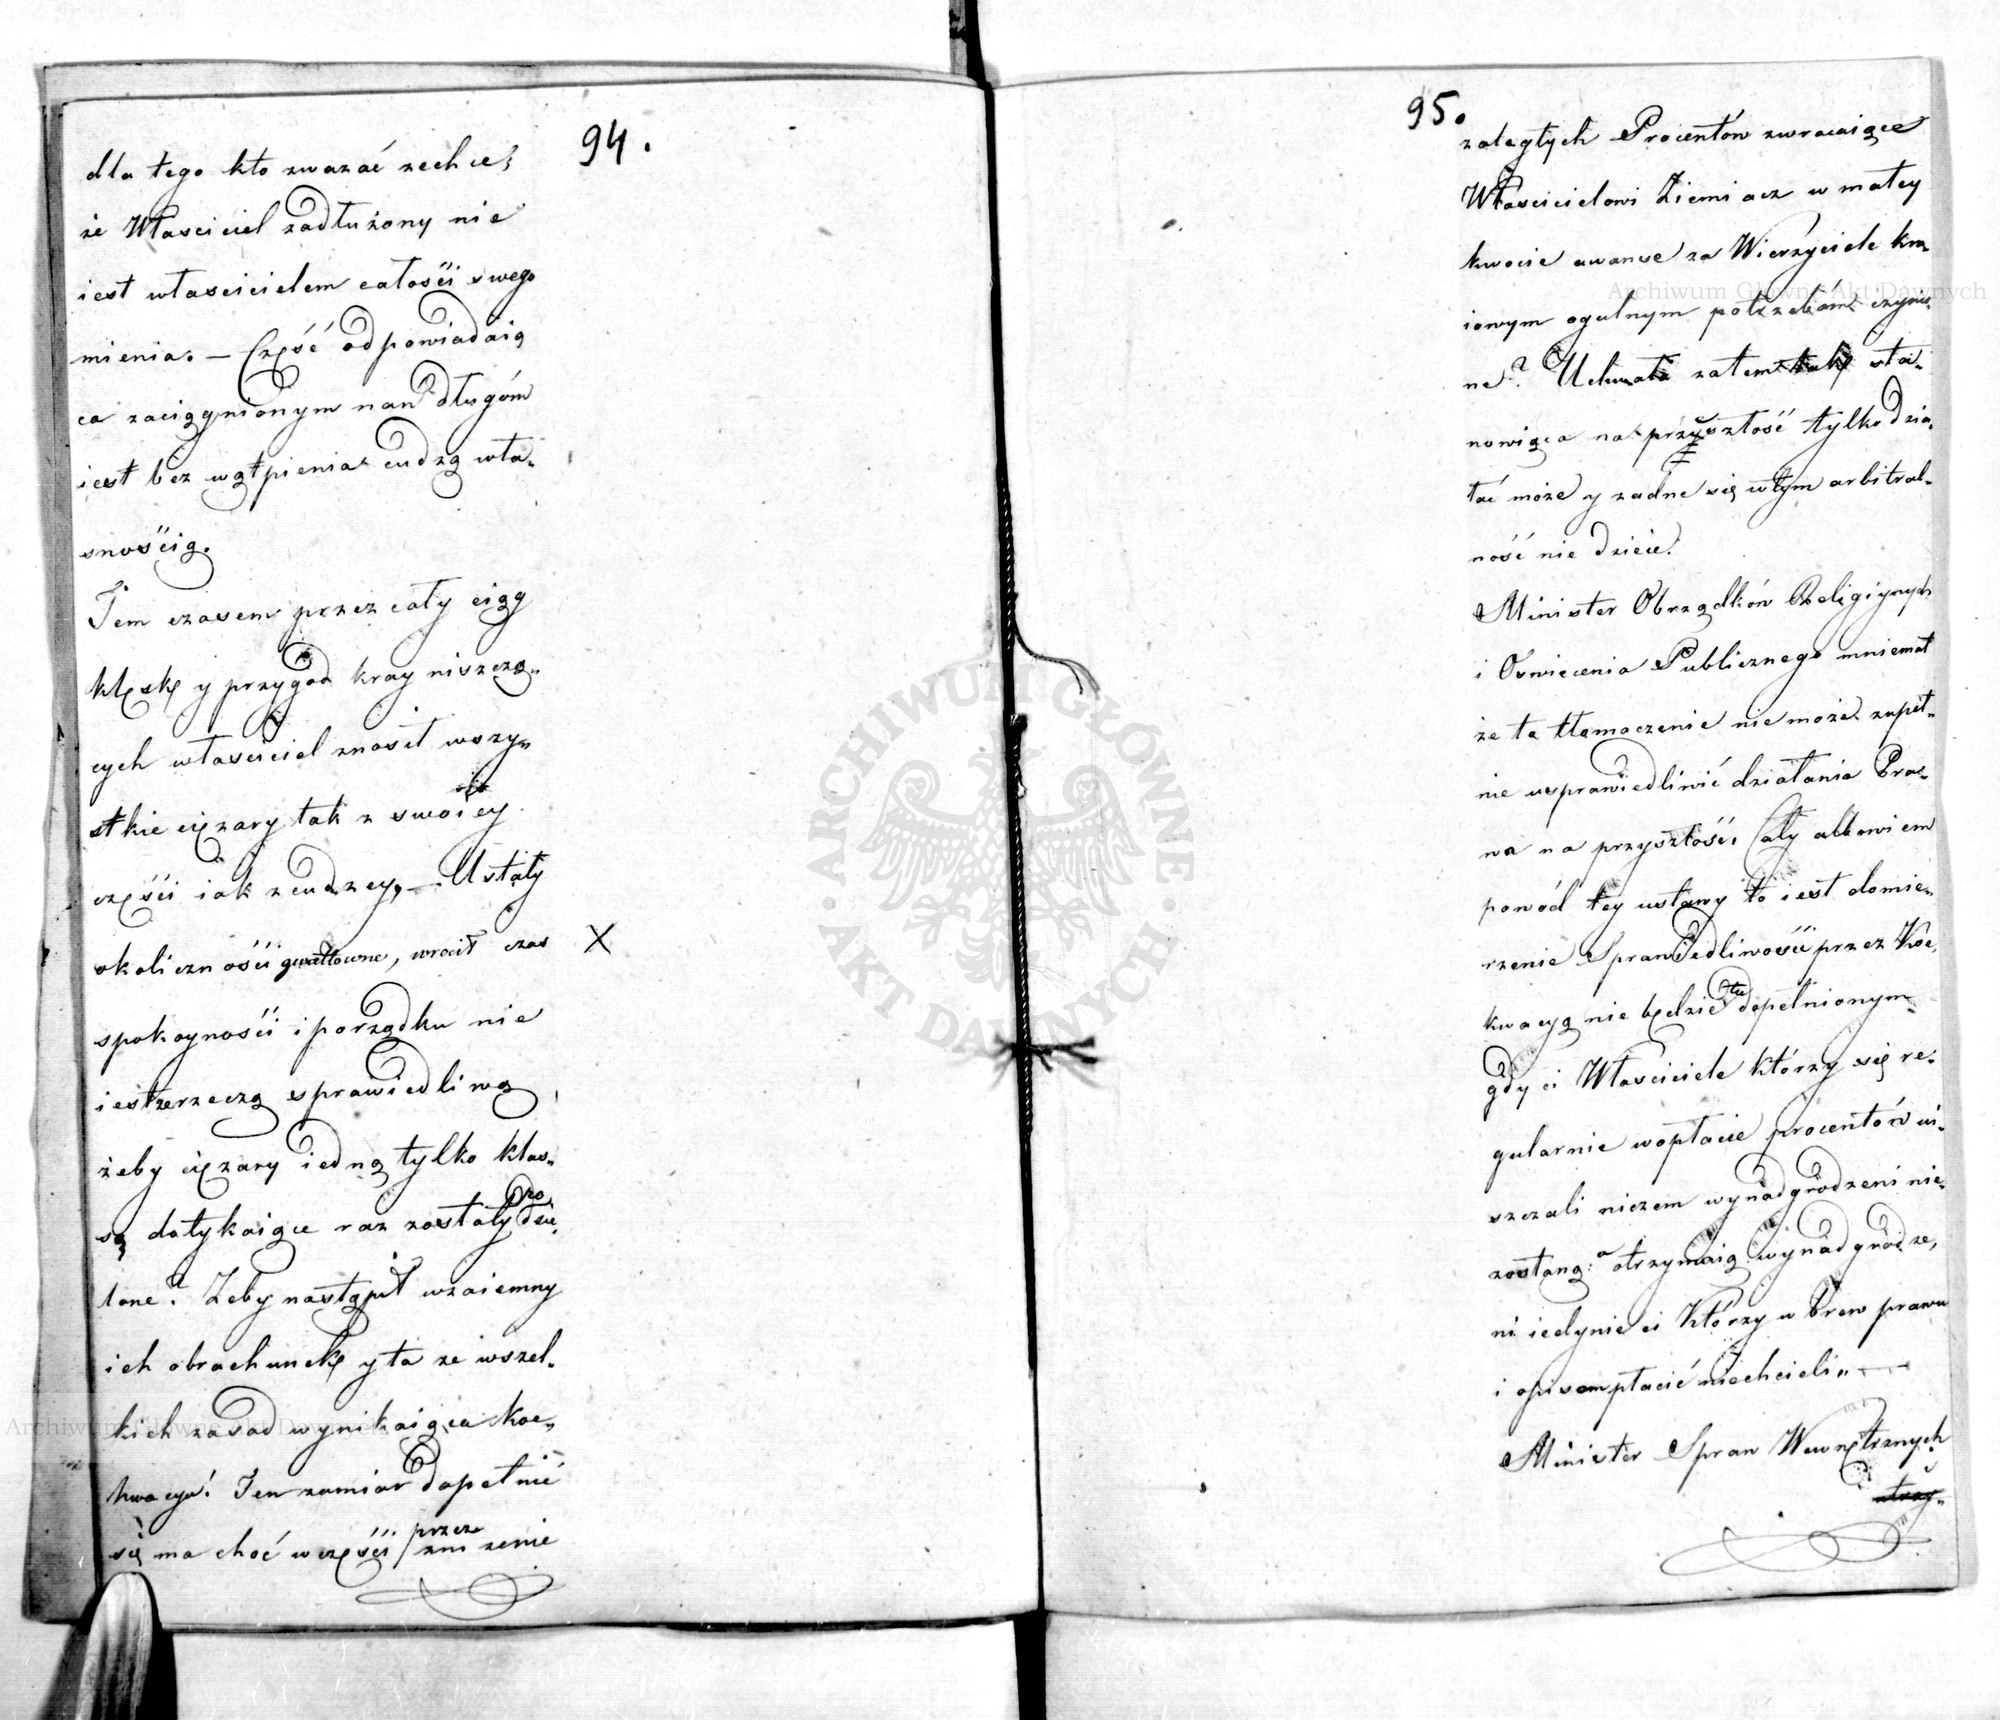 94.
dla tego kto zwazać zechce,
że Własciciel zadłużony nie
iest własicielem całości swego
mienia. — Część odpowiadaią
ca zaciągnionym nań długóm
iest bez wątpienia cudzą wła-
snością.
Tem czasem przez cały ciąg
klęsk y przygod kray niszczą-
cych własciciel znosił wszy-
stkie ciężary tak z swoiey
części iak z cudzey, — Ustały
okoliczności gwałtowne, wrócił czas X
spokoyności i porządku nie
iestże rzeczą sprawiedliwą
żeby ciężary iedną tylko klas-
sę dotykaiące raz zostały podzie-
lone? Żeby nastąpił wzaiemny
ich obrachunek y ta ze wszel-
kich zasad wynikaiąca Koe-
kwacya! Ten zamiar dopełnić
się ma choć w części przez zni żenie
95.
zaległych Procentów zwracaiące
Włascicielowi Ziemi acz w małey
kwocie awanse za Wierzyciele kra-
iowym ogulnym potrzebóm czynio-
ne? Uchwała zatem sta-
nowiąca na przyszłość tylko dzia-
łać może y zadne się w tym arbitral-
ność nie dzieie.
Minister Obrządków Religiynych
i Oswiecenia Publicznego mniemał
że to tłómaczenie nie może zupeł-
nie usprawiedliwić działania Pra-
wa na przyszłość. Cały albowiem
powód tey ustawy to iest domie-
rzenie Sprawiedliwości przez Koe-
kwacyą nie będzie tu dopełnionym
gdy ci Własciciele którzy się re-
gularnie w opłacie procentów ui-
szczali niczem wynadgrodzeni nie
zostaną: a otrzymaią wynadgrodze-
ni iedynie ci Którzy w brew prawu
i opisom płacić niechcieli„ —
Minister Spraw Wewnętrznych